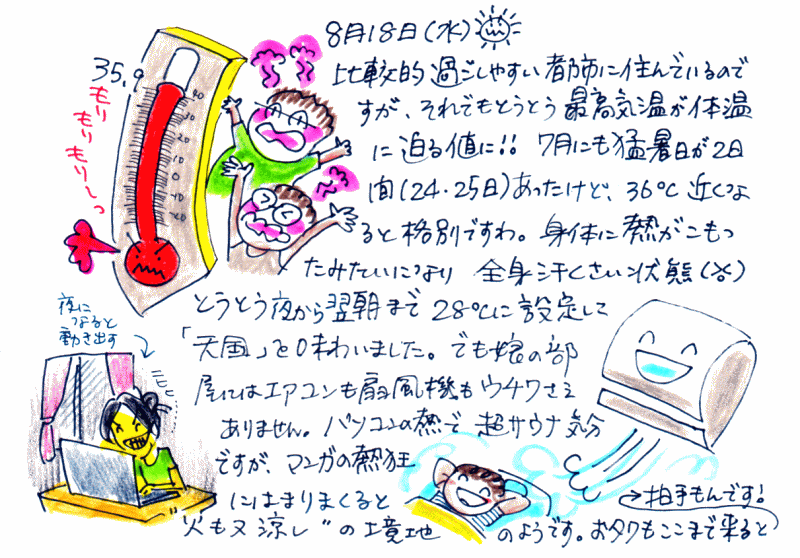 8月18日(水)
比較的過ごしやすい都市に住んでいるので
すが、それでもとうとう最高気温が体温
に迫る値に!! 7月にも猛暑日が2日
間(24・25日)あったけど、36℃近くな
ると格別ですわ。身体に熱がこもっ
たみたいになり 全身汗くさい状態(笑)
とうとう夜から翌朝まで28℃に設定して
「天国」を味わいました。でも娘の部
屋にはエアコンも扇風機もウチワさえ
ありません。パソコンの熱で超サウナ気分
ですが、マンガの熱狂
にはまりまくると
"火も又涼し"の境地のようです。おタクもここまで来ると
→拍手もんです!
35.9
もり
もり
もりーっ
40
30
20
10
0
10
20
夜に
なると
動き出す